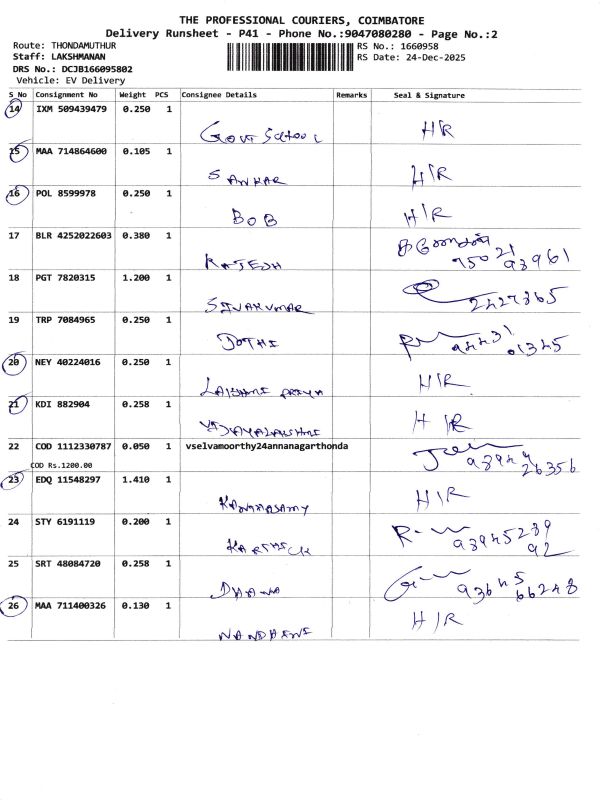 THE PROFESSIONAL COURIERS, COIMBATORE
Delivery Runsheet - P41 - Phone No.:9047080280 - Page No.:2
Route: THONDAMUTHUR RS No.: 1660958
Staff: LAKSHMANAN RS Date: 24-Dec-2025
DRS No.: DCJB166095802
Vehicle: EV Delivery
S_No Consignment No Weight PCS Consignee Details Remarks Seal & Signature
14 IXM 509439479 0.250 1
Govt School H/R
15 MAA 714864600 0.105 1
SANKAR H/R
16 POL 8599978 0.250 1
BOB H/R
17 BLR 4252022603 0.380 1
RAJESH 95021 93961
18 PGT 7820315 1.200 1
SIVAKUMAR 2427365
19 TRP 7084965 0.250 1
JOTHI 94431 01345
20 NEY 40224016 0.250 1
LAKSHMI PRIYA H/R
21 KDI 882904 0.258 1
VIJAYALAKSHMI H/R
22 COD 1112330787 0.050 1 vselvamoorthy24annanagarthonda
COD Rs.1200.00 26356
23 EDQ 11548297 1.410 1
KANTHASAMY H/R
24 STY 6191119 0.200 1
KARTHICK 92
25 SRT 48084720 0.258 1
DHANA 93645 66248
26 MAA 711400326 0.130 1
NANDHINI H/R